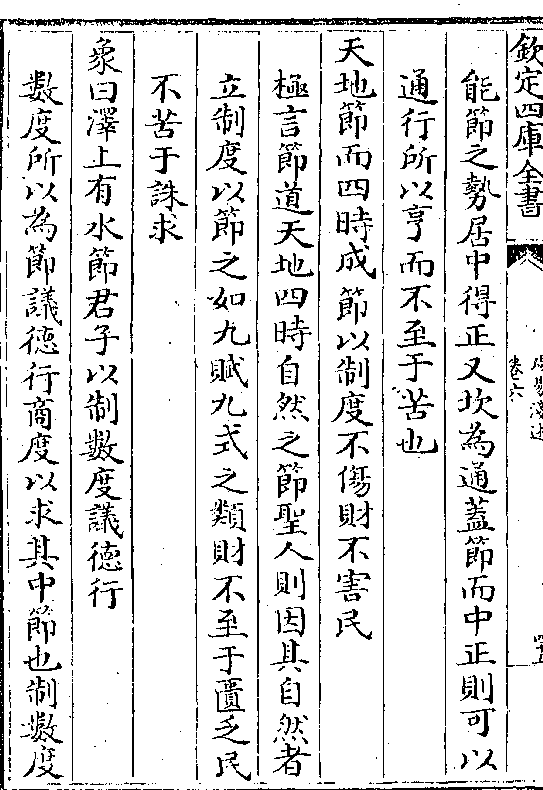 欽定四庫全書
卷六
能節之勢居中得正又坎為通蓋節而中正則可以
通行所以亨而不至于苦也
天地節而四時成節以制度不傷財不害民
極言節道天地四時自然之節聖人則因其自然者
立制度以節之如九賦九式之類財不至于匱乏民
不苦于誅求
象曰澤上有水節君子以制數度議德行
數度所以為節議德行商度以求其中節也制數度